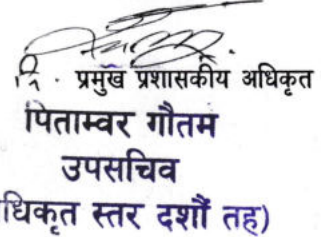 नि. प्रमुख प्रशासकीय अधिकृत
पिताम्वर गौतम
उपसचिव
धिकृत स्तर दशौं तह)